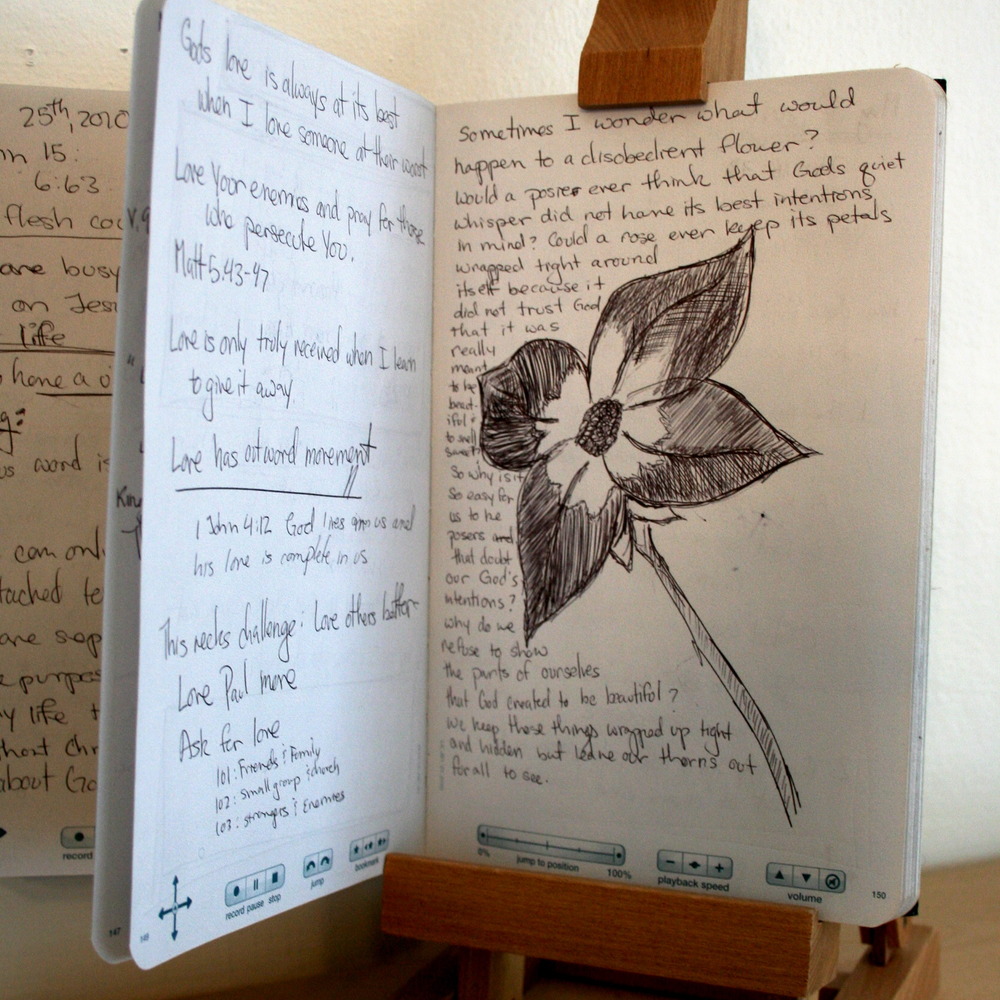 25th, 2010
15:
6:63
flesh
are busy
on Jesus
life
have a
word is
can only
are sep
purpos
life
about Go
record
147
Gods love is always at its best
when I love someone at their worst
Love Your enemies and pray for those
who persecute You.
Matt 5:43-47
Love is only truly received when I learn
to give it away
Love has outword movement
1 John 4:12 God lives in us and
his love is complete in us
This weeks challenge: Love others better
Love Paul more
Ask for love
101: Friends & Family
102: small group & church
103: strangers & Enemies
record pause stop
jump
bookmark
148
Sometimes I wonder what would
happen to a disobedient flower?
would a posie ever think that Gods quiet
whisper did not have its best intentions
in mind? Could a rose ever keep its petals
wrapped tight around
itself because it
did not trust God
that it was
really
meant
to be
beaut-
iful &
to smell
sweet?
So why is it
so easy for
us to be
posers and
that doubt
our God's
intentions?
why do we
refuse to show
the parts of ourselves
that God created to be beautiful?
we keep those things wrapped up tight
and hidden but leave our thorns out
for all to see.
0%
jump to position
100%
playback speed
volume
150